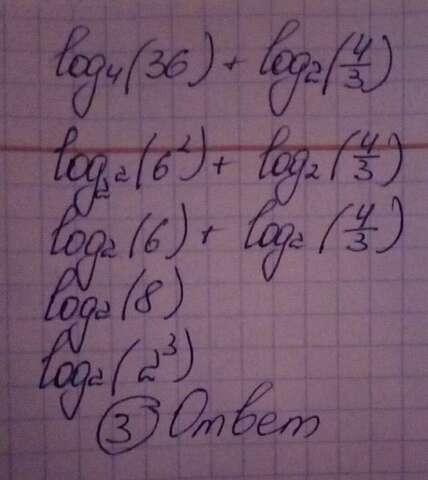 log₄(36) + log₂(4/3)
log₂²(6²) + log₂(4/3)
log₂(6) + log₂(4/3)
log₂(8)
log₂(2³)
3 Ответ